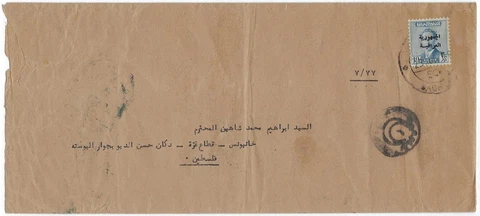 الجمهورية
العراقية
٧/٢٢
السيد ابراهيم محمد شاهين المحترم
خانيونس - قطاع غزة - دكان حسن الديو بجوار البوسته
فلسطين .